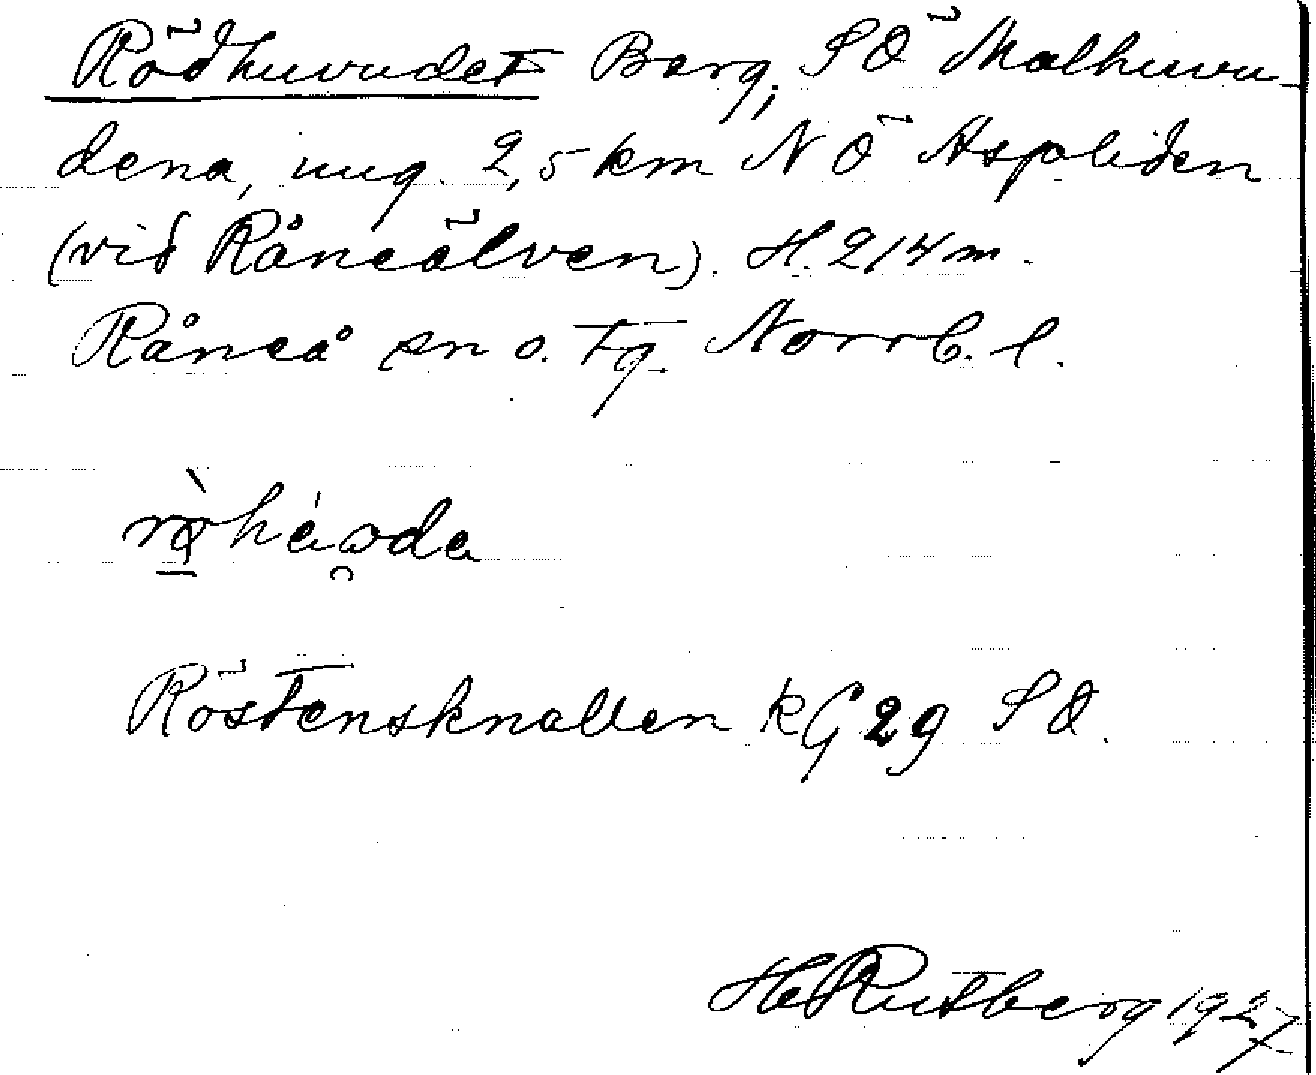 Rödhuvudet Berg, S Ö Malhuvu-
dena, ung. 2,5 km N Ö Aspliden
(vid Råneälven). H. 214 m.
Råneå sn o. tg. Norrb. l.
Röstensknallen RG 29 S Ö.
H Rutberg 1927